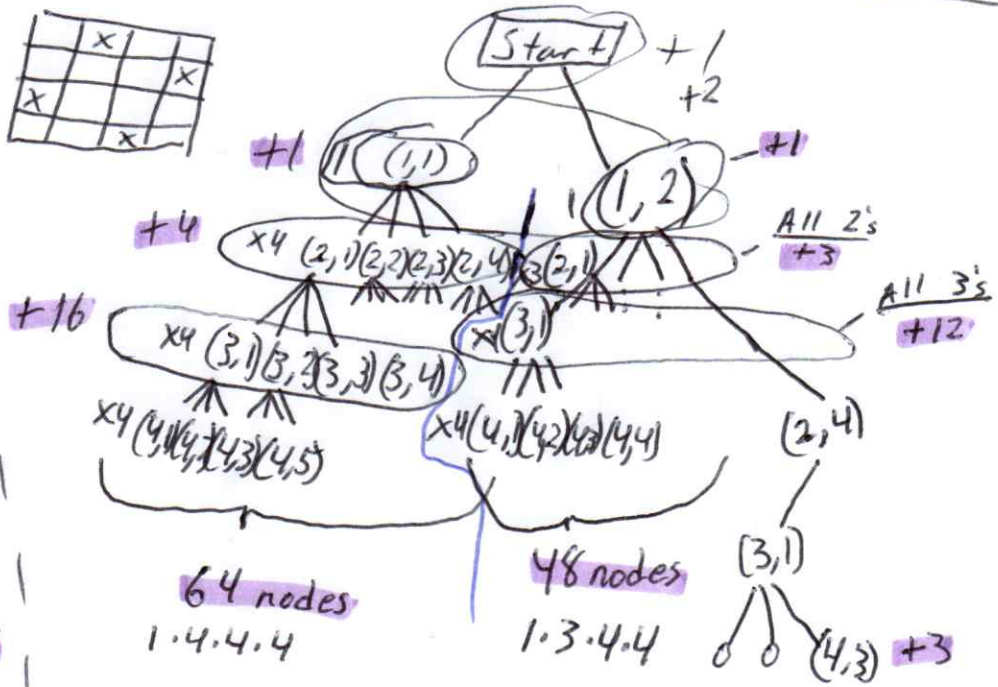 x
x
x
x
Start
+1
+2
+1
(1,1)
1
(1,2)
+1
+4
x4 (2,1)(2,2)(2,3)(2,4)
3(2,1)
All 2's
+3
+16
x4 (3,1)(3,2)(3,3)(3,4)
(3,1)
All 3's
+12
x4 (4,1)(4,2)(4,3)(4,5)
x4(4,1)(4,2)(4,3)(4,4)
(2,4)
(3,1)
64 nodes
48 nodes
1·4·4·4
1·3·4·4
(4,3)
+3